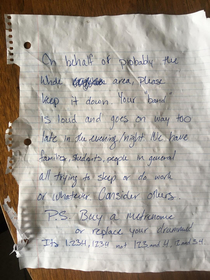 On behalf of probably the
whole area, Please
keep it down. Your "band"
is loud and goes on way too
late in the evening/night. We have
families, students, people in general
all trying to sleep or do work
or whatever. Consider others.
P.S. Buy a metronome
or replace your drummer.
Its 1234, 1234 not 123 and 4, 12 and 34